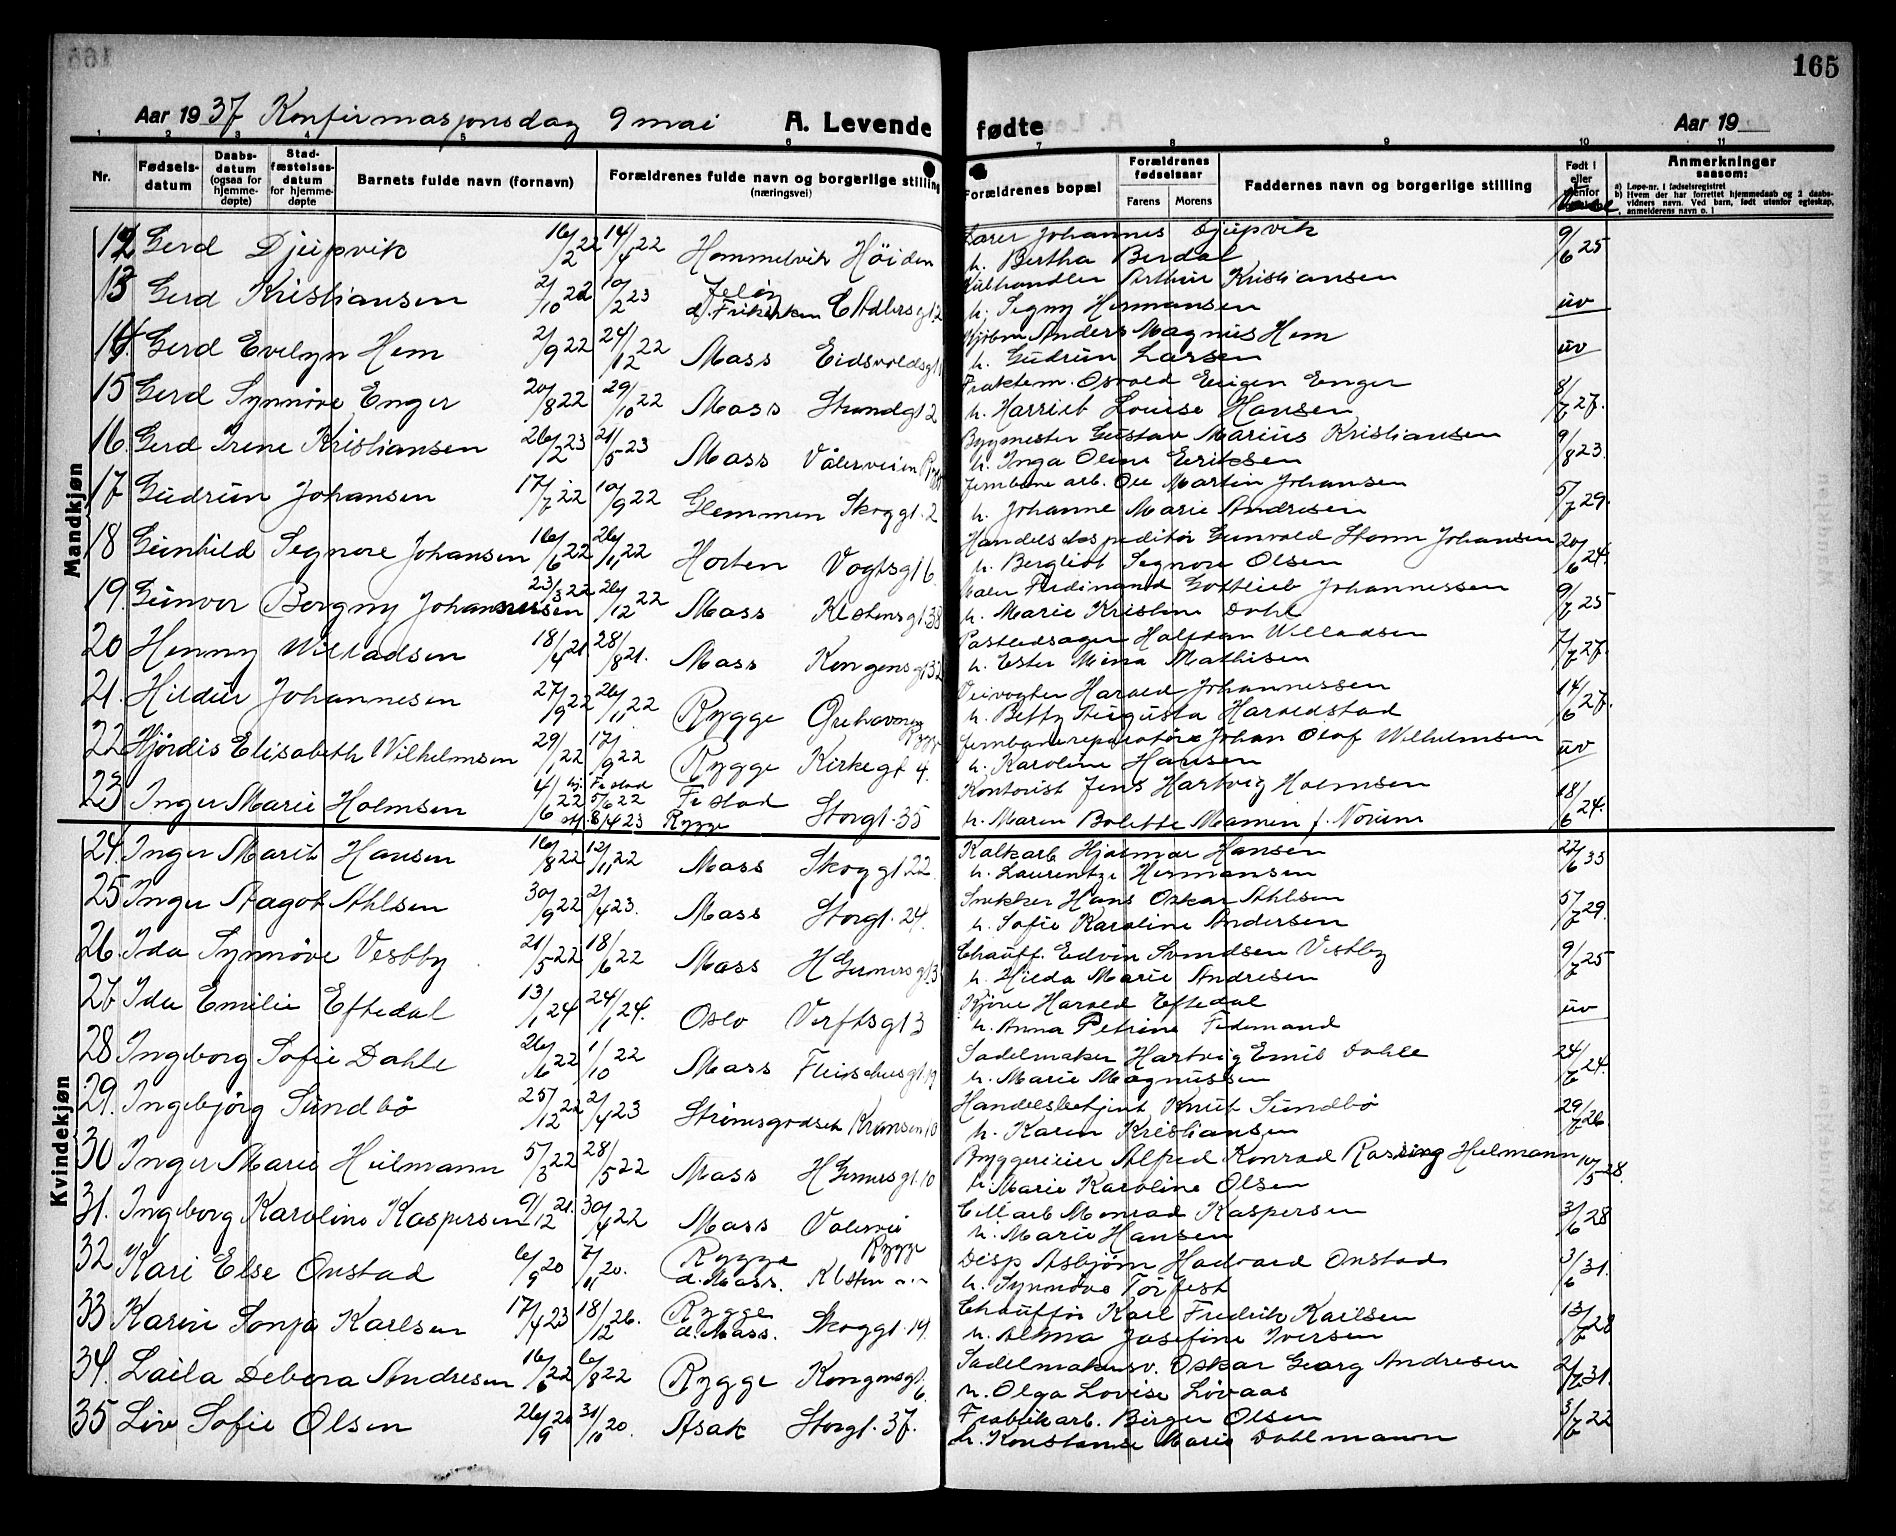 165
Aar 1937 Konfirmasjonsdag 9 mai A. Levende fødte Aar 19
1 2 3 4 5 6 7 8 9 10 11
Nr. Fødsels-datum Daabs-datum (ogsaa for hjemme-døpte) Stad-fæstelses-datum for hjemme-døpte Barnets fulde navn (fornavn) Forældrenes fulde navn og borgerlige stilling (næringsvei) Forældrenes bopæl Forældrenes fødselsaar Farens Morens Faddernes navn og borgerlige stilling Født i eller utenfor Anmerkninger saasom:
a) Løpe-nr. i fødselsregistret
b) Hvem der har forrettet hjemmedaab og 2 daabs-vidners navn. Ved barn, født utenfor egteskap, anmelderens navn o. l
Mandkjøn
12 Gerd Djupvik 16/2 22 14/4 22 Hommelvik Höiden Lærer Johannes Djupvik 9/6 25
h. Bertha Berdal
13 Gerd Kristiansen 2/10 22 10/2 23 Jeløy d. Frikirken C Adlersgt 2 Kulhandler Arthur Kristiansen uv
h. Segny Hermansen
14. Gerd Evelyn Hem 2/9 22 24/12 22 Moss Eidsvoldsgt Anders Magnus Hem uv
h. Gudrun Larsen
15 Gerd Synnöve Enger 20/8 22 29/10 22 Moss Strandgt 2 Fraktem. Osvald Eugen Enger 8/7 27.
h. Harriet Louise Hansen
16. Gerd Irene Kristiansen 26/2 23 21/5 23 Moss Vålerveien Rygge Bygmester Gustav Marius Kristiansen 9/8 23
h. Inga Oline Eriksen
17 Gudrun Johansen 17/7 22 10/9 22 Glemmen Skoggt. 2 Jernbane arb. Ole Martin Johansen 5/7 29.
h. Johanne Marie Andresen
18 Gunhild Segnore Johansen 16/6 22 26/11 22 Horten Vogtsgt 6 Handelsekspeditör Gunvald Storm Johansen 20/6 24.
h. Bergliot Segnora Olsen
19. Gunvor Borgny Johannesen 23/3 22 26/12 22 Moss Klostersgt. 38 Maler Ferdinand Gottlieb Johannessen 9/7 25
h. Marie Kristine Dahl
20 Henny Willadsen 18/4 21 28/8 21. Moss Kongensgt 32 Halfdan Willadsen 7/7 27.
h. Ester Mina Mathisen
21. Hildur Johannesen 27/9 22 26/11 22 Rygge Grehavnen Rygge Veivogter Harald Johannessen 14/6 27.
h. Betty Augusta Haraldstad
22 Hjördis Elisabeth Wilhelmsen 29/1 22 17/9 22 Rygge Kirkegt 4. Jernbanereparatör Johan Olaf Wilhelmsen uv
h. Karoline Hansen
23 Inger Marie Holmsen 4/6 22 hj. Fistad 5/6 22 Fistad Storgt. 35 Kontorist Jens Hartvig Holmsen 18/6 24.
stf. 8/4 23 Rygge h. Maren Bolette Mamen f. Norum
Kvindekjøn
24. Inger Marit Hansen 16/8 22 12/11 22 Moss Skoggt. 22 Kalkarb Hjalmar Hansen 22/6 33
h. Laurentze Hermansen
25 Inger Aagot Ahlsen 30/9 22 2/4 23. Moss Storgt. 24. Snekker Hans Oskar Ahlsen 5/7 29.
h. Sofie Karoline Andersen
26 Ida Synnöve Vestby 21/5 22 18/6 22 Moss H Gernersgt 3 Chauff. Edvin Svendsen Vestby 9/7 25
h. Hilda Marie Andresen
27 Ida Emilie Eftedal 13/1 24 24/1 24. Oslo Verftsgt 3 Harald Eftedal uv
h. Anna Petrine Fedemand
28 Ingeborg Sofie Dahle 26/6 22 1/10 22 Moss Fleischersgt 19 Sadelmaker Hartvig Emil Dahle 24/6 24.
h. Marie Magnussen
29. Ingebjörg Sundbö 25/12 22 2/4 23 Strömsgodset Kransen 10 Handelsbetjent Knut Sundbö 29/7 26
h. Karen Kristiansen
30 Inger Marie Heilmann 5/3 22 28/5 22 Moss H Gernersgt. 10 Byggereier Alfred Konrad Rasring Heilmann 10/5 28.
h. Marie Karoline Olsen
31. Ingeborg Karoline Kaspersen 9/12 21. 30/4 22 Moss Valervei Rygge Cell arb Monrad Kaspersen 3/6 28
h. Marie Hansen
32 Kari Else Onstad 6/9 20 7/11 20. Rygge d. Moss. Disp Asbjørn Hadvard Onstad 3/6 31.
h. Synnöve Torfest
33 Karin Sonja Karlsen 17/4 23 18/12 26. Rygge d. Moss. Skoggt. 19. Chaufför Karl Fredrik Karlsen 13/7 28
h. Alma Josefine Iversen
34. Laila Debora Andresen 16/6 22 6/8 22 Rygge Kongensgt. 6 Sadelmakersv. Oskar Georg Andresen 2/7 31.
h. Olga Lovise Lövaas
35 Liv Sofie Olsen 26/9 20 31/10 20. Asak Storgt. 37. Fabrikarb. Birger Olsen 3/7 22
h. Konstanse Marie Dahlmann